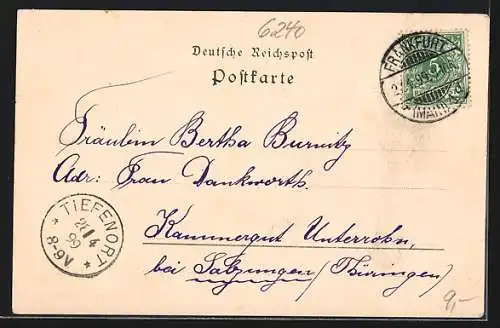 6240
Deutsche Reichspost
Postkarte
FRANKFURT
(MAIN)
5
Fräulein Bertha Burnitz
Adr: Frau Dankworth.
* TIEFENORT *
4
99
8-9V
Kammergut Unterrohn,
bei Salzungen (Türingen)
9,-